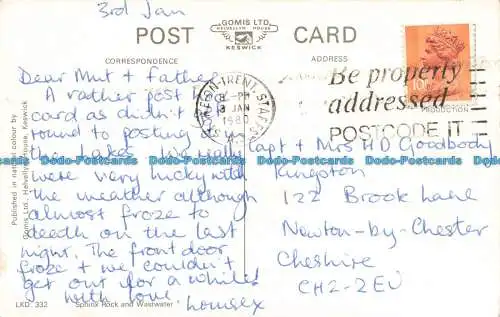 3rd Jan
GOMIS LTD.
HELVELLYN HOUSE
KESWICK
POST CARD
CORRESPONDENCE
ADDRESS
Dear Mut + Father
A rather post
card as didn't
round to posting
the Lakes. We really
were very lucky with
the weather although
almost froze to
deedh on the last
night. The front door
froze + we couldn't
get out for a while!
with love
BURTON-ON-TRENT STAFFS
8 - PM
3 JAN
1980
Be properly
addressed
POSTCODE IT
PRODUCTION
10P
Capt + Mrs H D Goodbody
Kingston
122 Brook Lane
Newton-by-Chester
Cheshire
CH2-2EU
Published in natural colour by
Gomis Ltd., Helvellyn House, Keswick
LKD. 332
Sphinx Rock and Wastwater
Dodo-Postcards Dodo-Postcards Dodo-Postcards Dodo-Postcards Dodo-Postcards